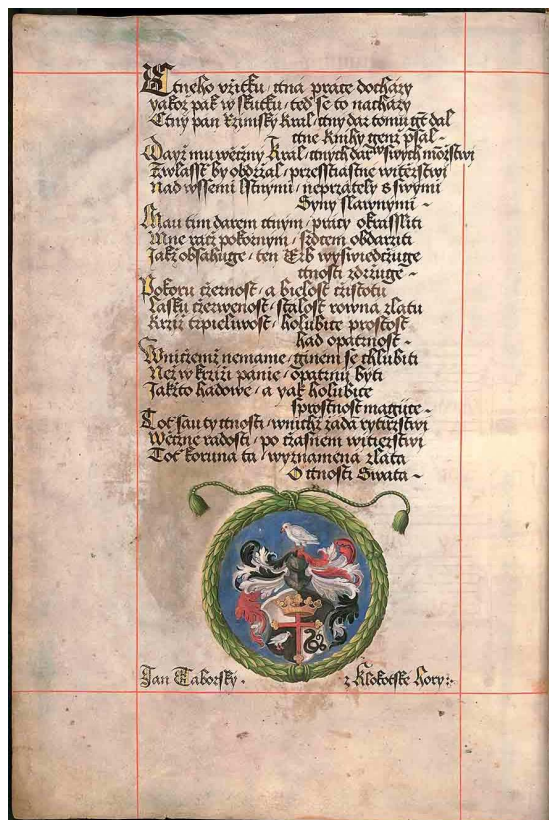 Ctneho vžitku / ctna prace dochazy
yakož pak w skutku / teď se to nachazy
Ctny pan Rzimsky Kral / ctny dar tomu gt dal
ctne knihy genž psal ~
Dayž mu wěčzny Kral / ctnych darůw swych
Zwlasst by obdržal / przesstiastne witězstwi
nad wssemi lstnymi / neprzately s swymi
Syny slawnymi ~
Mau tim darem ctnym / pracy okrassliti
Mne racž pokornym / srdcem obdarziti
Jakž obsahuge / ten Erb wyswiedcžuge
ctnosti zdržuge ~
Pokoru cžernost / a bielost cžistotu
Lasku cžerwenost / stalost rowna zlatu
Krziž trpieliwost / holubice prostost
had opatrnost ~
Wnicžemž nemame / ginem se chlubiti
Než w krziži panie / opatrnu byti
Jakžto hadowe / a yak holubice
sprostnost magice ~
Tot sau ty ctnosti / wnichž žada rytirzstwi
Wěčzne radosti / po cžasnem witiezstwi
Tot koruna ta / wyznamena zlata
O ctnosti Swata ~
Jan Taborsky .
z Klokotske Hory :~